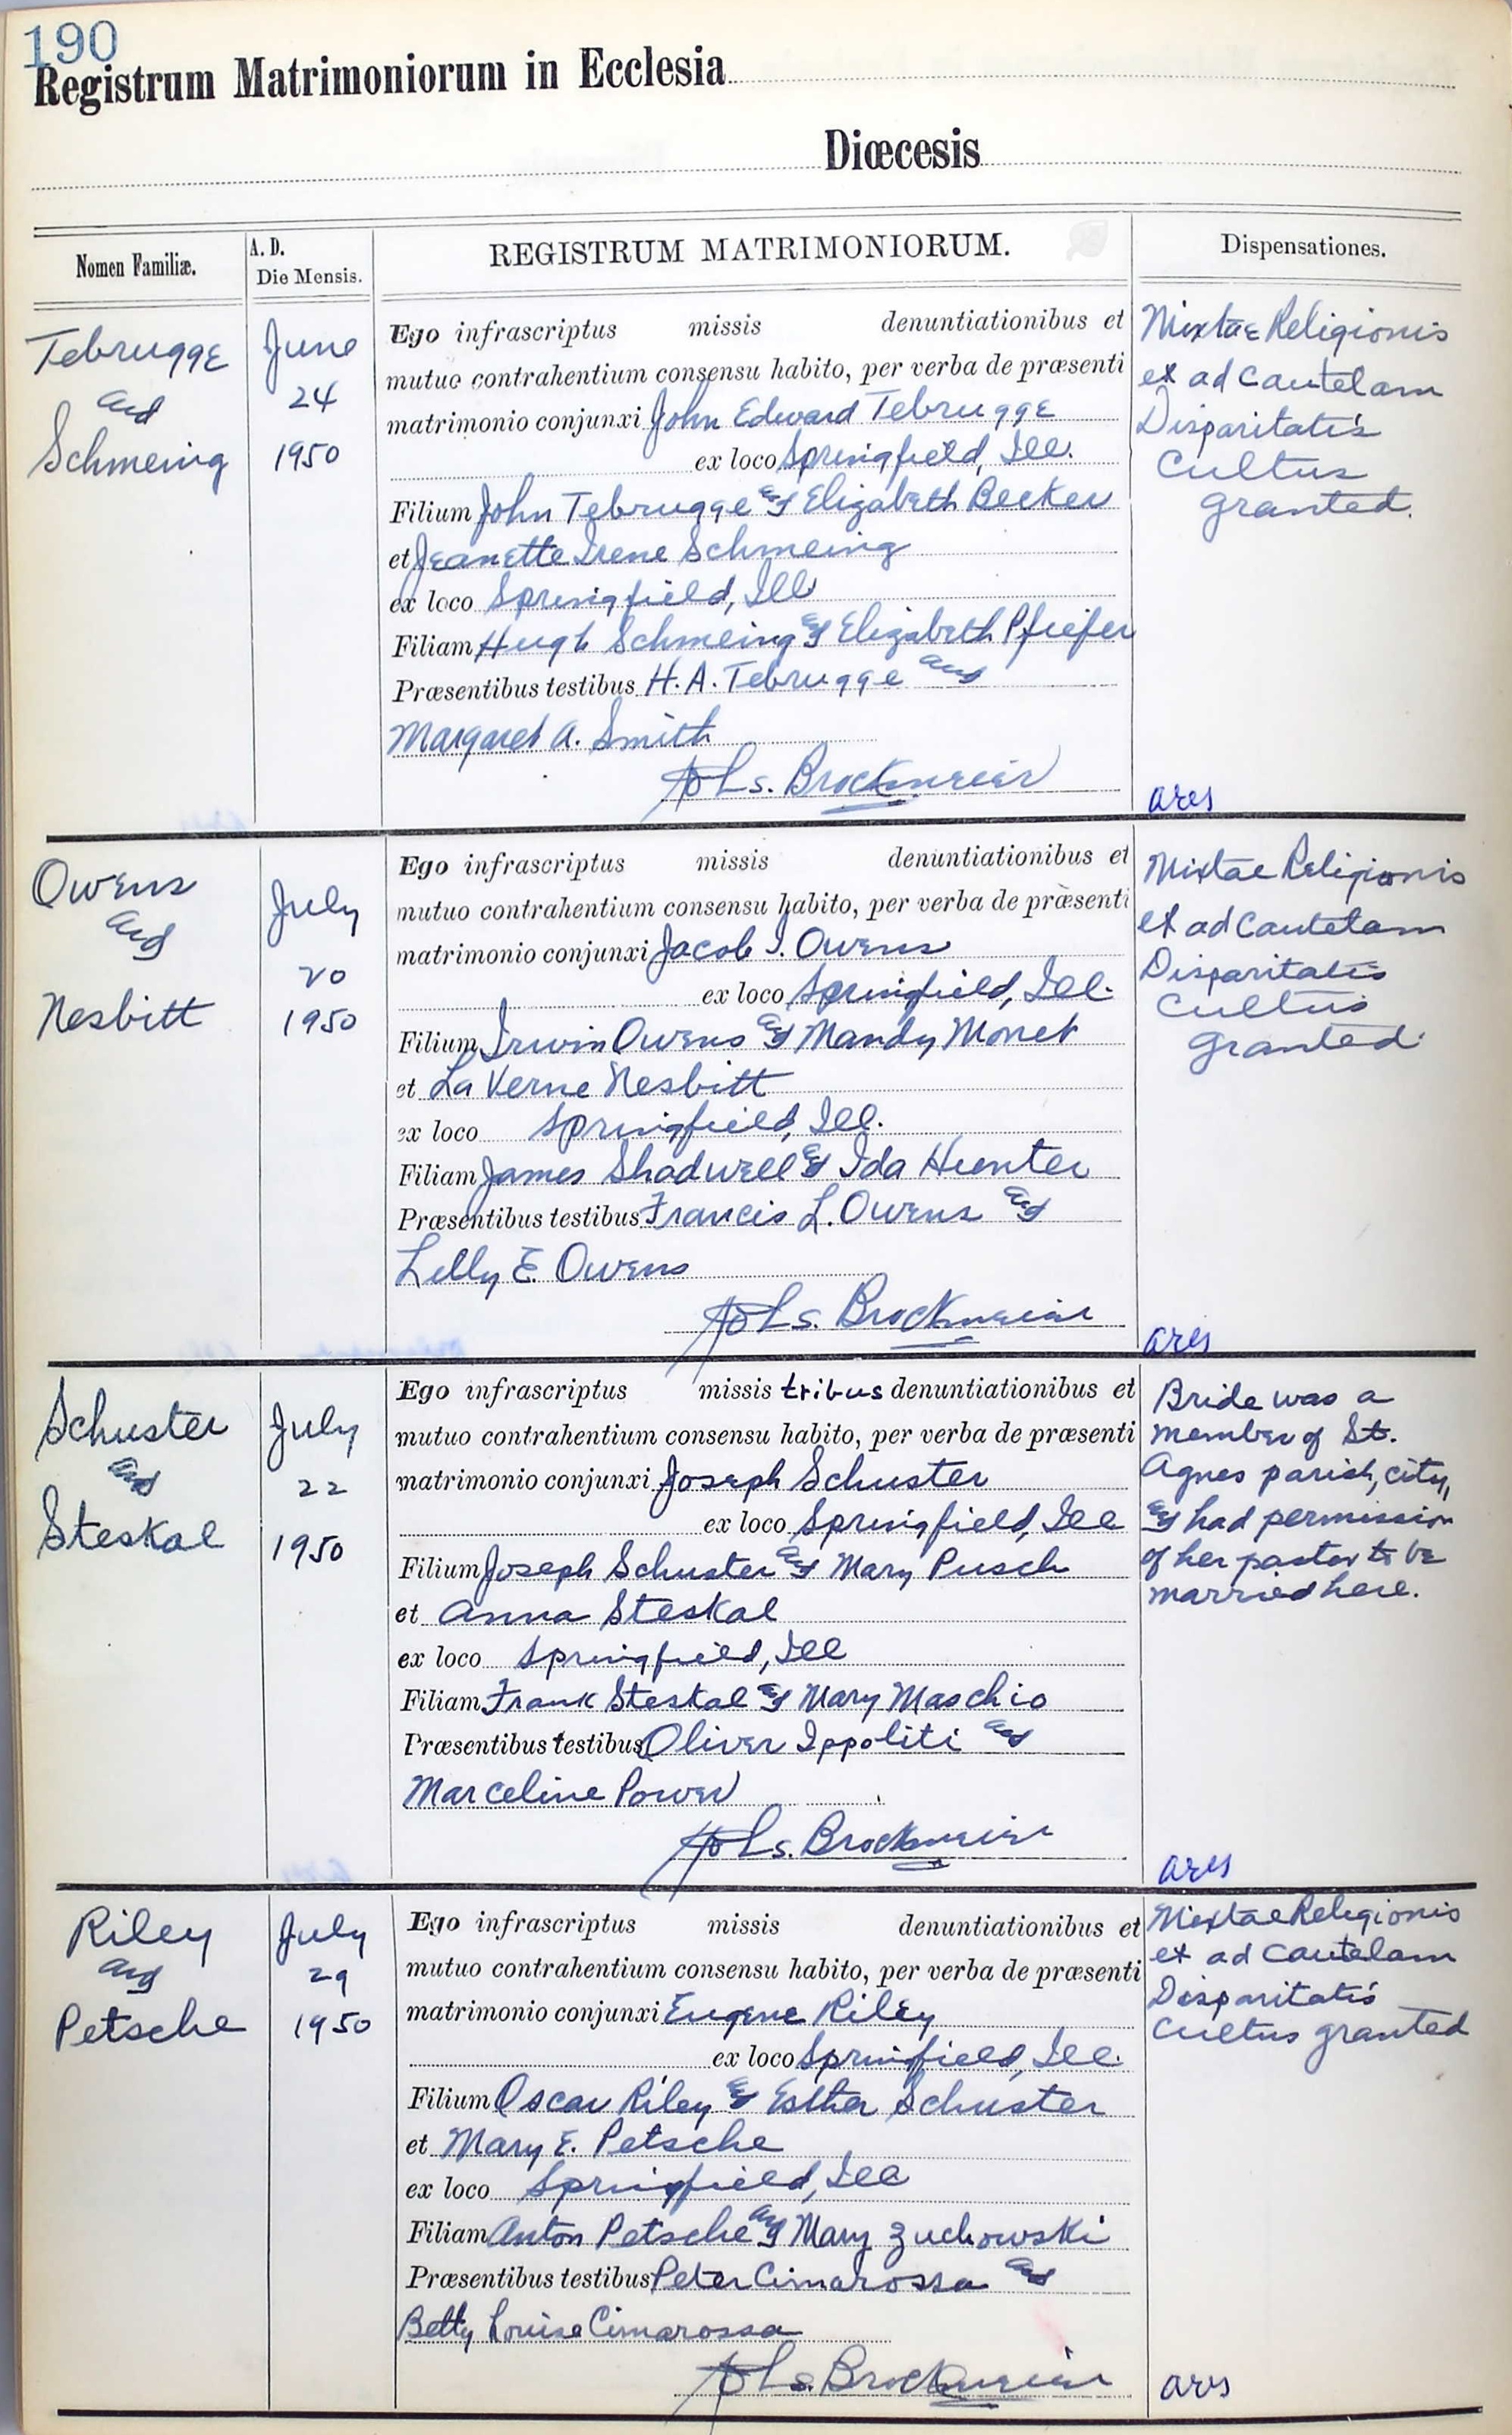 190
Registrum Matrimoniorum in Ecclesia
Diœcesis
Nomen Familiæ.
A. D.
Die Mensis.
REGISTRUM MATRIMONIORUM.
Dispensationes.
Tebrugge
and
Schmeing
June
24
1950
Ego infrascriptus missis denuntiationibus et
mutuo contrahentium consensu habito, per verba de præsenti
matrimonio conjunxi John Edward Tebrugge
ex loco Springfield, Ill.
Filium John Tebrugge and Elizabeth Becker
et Jeanette Irene Schmeing
ex loco Springfield, Ill
Filiam Hugh Schmeing and Elizabeth Pfeifer
Præsentibus testibus H. A. Tebrugge and
Margaret A. Smith
Brockmeier
Mixtae Religionis
et ad cautelam
Disparitatis
Cultus
granted.
ares
Owens
and
Nesbitt
July
20
1950
Ego infrascriptus missis denuntiationibus et
mutuo contrahentium consensu habito, per verba de præsenti
matrimonio conjunxi Jacob I. Owens
ex loco Springfield, Ill.
Filium Irwin Owens and Mandy Monet
et La Verne Nesbitt
ex loco Springfield, Ill.
Filiam James Shadwell and Ida Hunter
Præsentibus testibus Francis L. Owens and
Lilly E. Owens
Brockmeier
Mixtae Religionis
et ad cautelam
Disparitatis
Cultus
granted.
ares
Schuster
and
Steskal
July
22
1950
Ego infrascriptus missis tribus denuntiationibus et
mutuo contrahentium consensu habito, per verba de præsenti
matrimonio conjunxi Joseph Schuster
ex loco Springfield, Ill
Filium Joseph Schuster and Mary Pusch
et Anna Steskal
ex loco Springfield, Ill
Filiam Frank Steskal and Mary Maschio
Præsentibus testibus Oliver Ippoliti and
Marceline Power
Brockmeier
Bride was a
member of St.
Agnes parish, city,
and had permission
of her pastor to be
married here.
ares
Riley
and
Petsche
July
29
1950
Ego infrascriptus missis denuntiationibus et
mutuo contrahentium consensu habito, per verba de præsenti
matrimonio conjunxi Eugene Riley
ex loco Springfield, Ill.
Filium Oscar Riley and Esther Schuster
et Mary E. Petsche
ex loco Springfield, Ill
Filiam Anton Petsche and Mary Zuchowski
Præsentibus testibus Peter Cimarossa and
Betty Louise Cimarossa
Brockmeier
Mixtae Religionis
et ad cautelam
Disparitatis
Cultus granted
ares